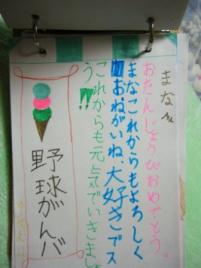 まなへ
おたんじょうびおめでとう。
まなこれからもよろしく
おねがいね、大好きでス
これからも元気でいきましょ
う!!
野球がんバ